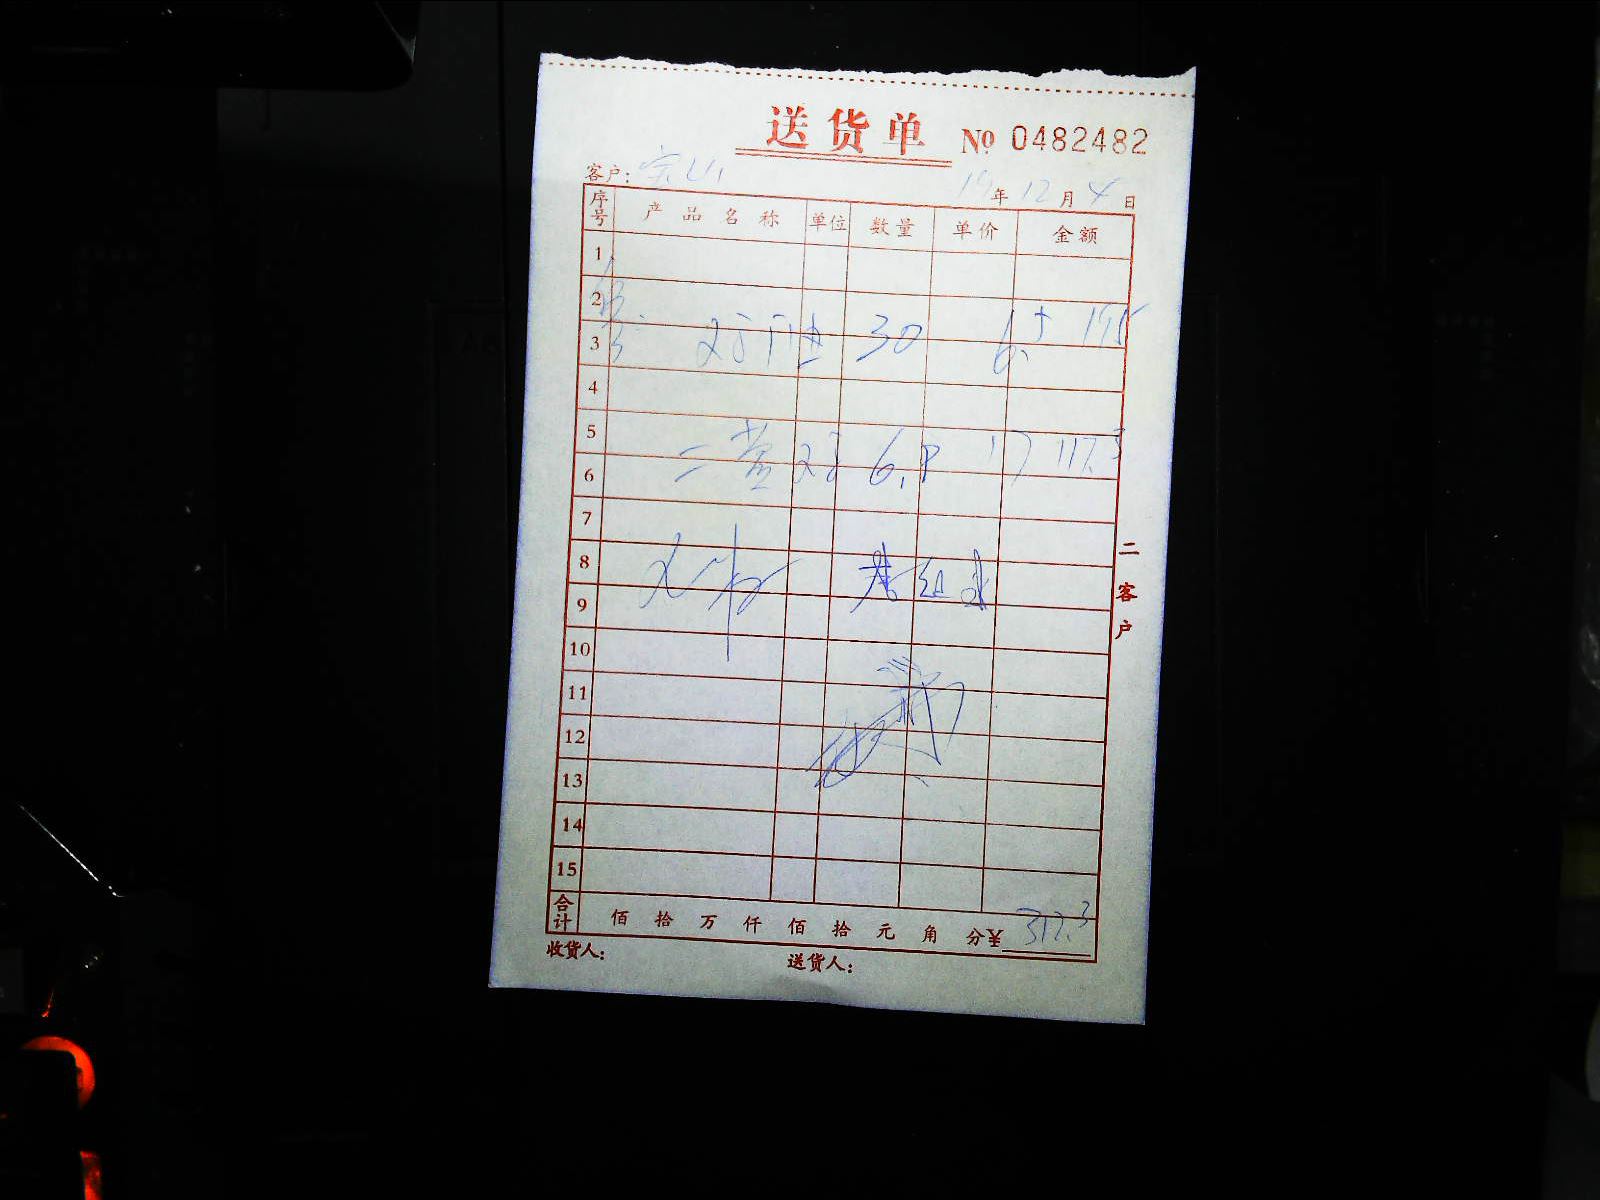 送货单 № 0482482
客户: 宝山 19年12月4日
序号 产品名称 单位 数量 单价 金额
1
2
3 30 6.5 195
4
5
6 二 6.9 17 117.3
7
8
9
10
11
12
13
14
15
合计 佰 拾 万 仟 佰 拾 元 角 分¥ 312.3
收货人: 送货人:
二客户